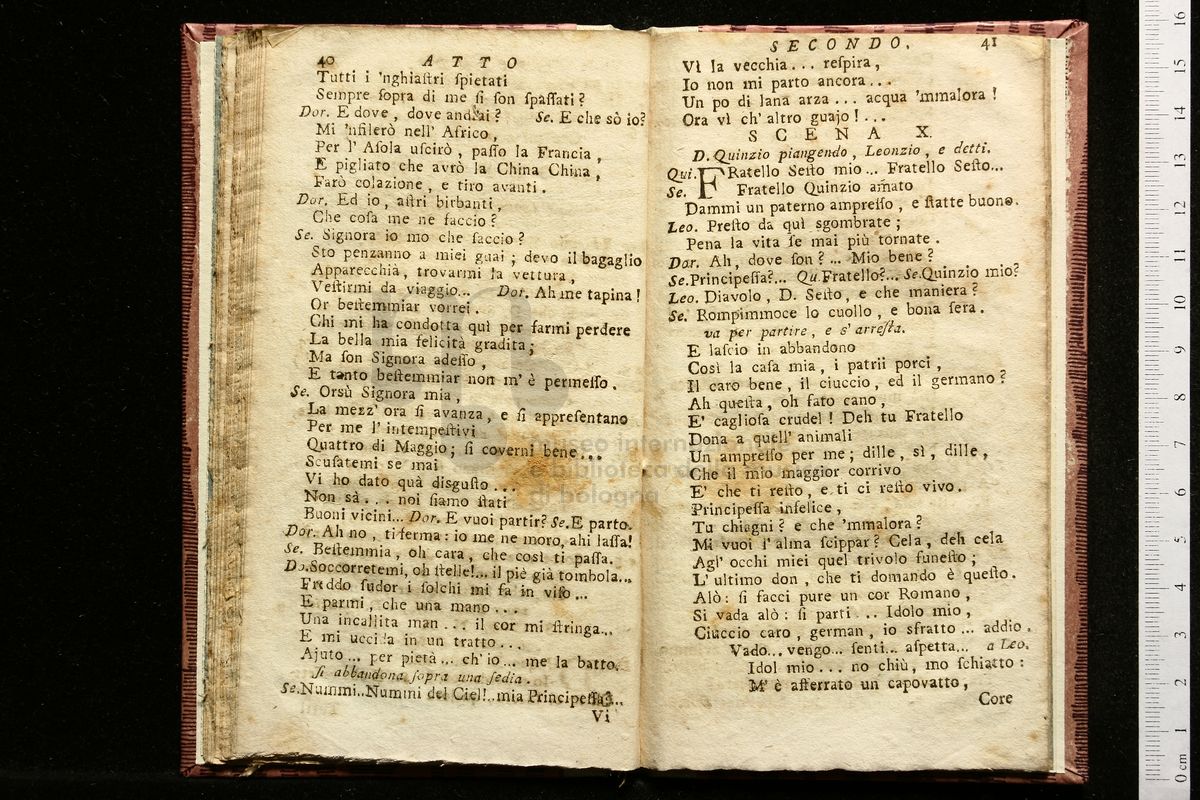 40 ATTO
Tutti i 'nghiaſtri ſpietati
Sempre ſopra di me ſi ſon ſpaſſati?
Dor. E dove, dove andrai? Se. E che sò io?
Mi 'nfilerò nell' Africo,
Per l' Aſola uſcirò, paſſo la Francia,
E pigliato che avrò la China China,
Farò colazione, e tiro avanti.
Dor. Ed io, aſtri birbanti,
Che coſa me ne faccio?
Se. Signora io mo che faccio?
Sto penzanno a miei guai; devo il bagaglio
Apparecchià, trovarmi la vettura,
Veſtirmi da viaggio... Dor. Ah me tapina!
Or beſtemmiar vorrei.
Chi mi ha condotta quì per farmi perdere
La bella mia felicità gradita;
Ma ſon Signora adeſſo,
E tanto beſtemmiar non m' è permeſſo.
Se. Orsù Signora mia,
La mezz' ora ſi avanza, e ſi appreſentano
Per me l' intempeſtivi
Quattro di Maggio; ſi coverni bene...
Scuſatemi se mai
Vi ho dato quà disguſto...
Non sà... noi ſiamo ſtati
Buoni vicini... Dor. E vuoi partir? Se. E parto.
Dor. Ah no, ti ferma: io me ne moro, ahi laſſa!
Se. Beſtemmia, oh cara, che così ti paſſa.
Do. Soccorretemi, oh ſtelle!... il piè già tombola...
Freddo ſudor i ſolchi mi fa in viſo...
E parmi, che una mano...
Una incallita man... il cor mi ſtringa...
E mi uccida in un tratto...
Ajuto... per pietà... ch' io... me la batto.
ſi abbandona ſopra una ſedia.
Se. Nummi.. Nummi del Ciel!.. mia Principeſſa?...
Vi
SECONDO. 41
Vì la vecchia... reſpira,
Io non mi parto ancora...
Un po di lana arza... acqua 'mmalora!
Ora vì ch' altro guajo!...
SCENA X.
D. Quinzio piangendo, Leonzio, e detti.
Qui. FRatello Seſto mio... Fratello Seſto...
Se. Fratello Quinzio amato
Dammi un paterno ampreſſo, e ſtatte buono.
Leo. Preſto da quì sgombrate;
Pena la vita ſe mai più tornate.
Dor. Ah, dove ſon?... Mio bene?
Se. Principeſſa?... Qu. Fratello?... Se. Quinzio mio?
Leo. Diavolo, D. Seſto, e che maniera?
Se. Rompimmoce lo cuollo, e bona ſera.
va per partire, e s' arreſta.
E laſcio in abbandono
Così la caſa mia, i patrii porci,
Il caro bene, il ciuccio, ed il germano?
Ah queſta, oh fato cano,
E' cagliofa crudel! Deh tu Fratello
Dona a quell' animali
Un ampreſſo per me; dille, sì, dille,
Che il mio maggior corrivo
E' che ti reſto, e ti ci reſto vivo.
Principeſſa infelice,
Tu chiagni? e che 'mmalora?
Mi vuoi l' alma ſcippar? Cela, deh cela
Agl' occhi miei quel trivolo funeſto;
L' ultimo don, che ti domando è queſto.
Alò: ſi facci pure un cor Romano,
Si vada alò: ſi parti... Idolo mio,
Ciuccio caro, german, io sfratto... addio.
Vado... vengo... ſenti... aſpetta... a Leo.
Idol mio... no chiù, mo ſchiatto:
M' è afferrato un capovatto,
Core
museo internazionale
e biblioteca della musica
di bologna
0 cm 1 2 3 4 5 6 7 8 9 10 11 12 13 14 15 16